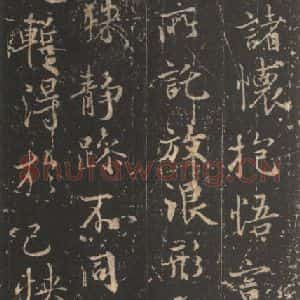 諸懷抱悟言
所託放浪形
殊靜躁不同
蹔得於己快
Shufawang.CN